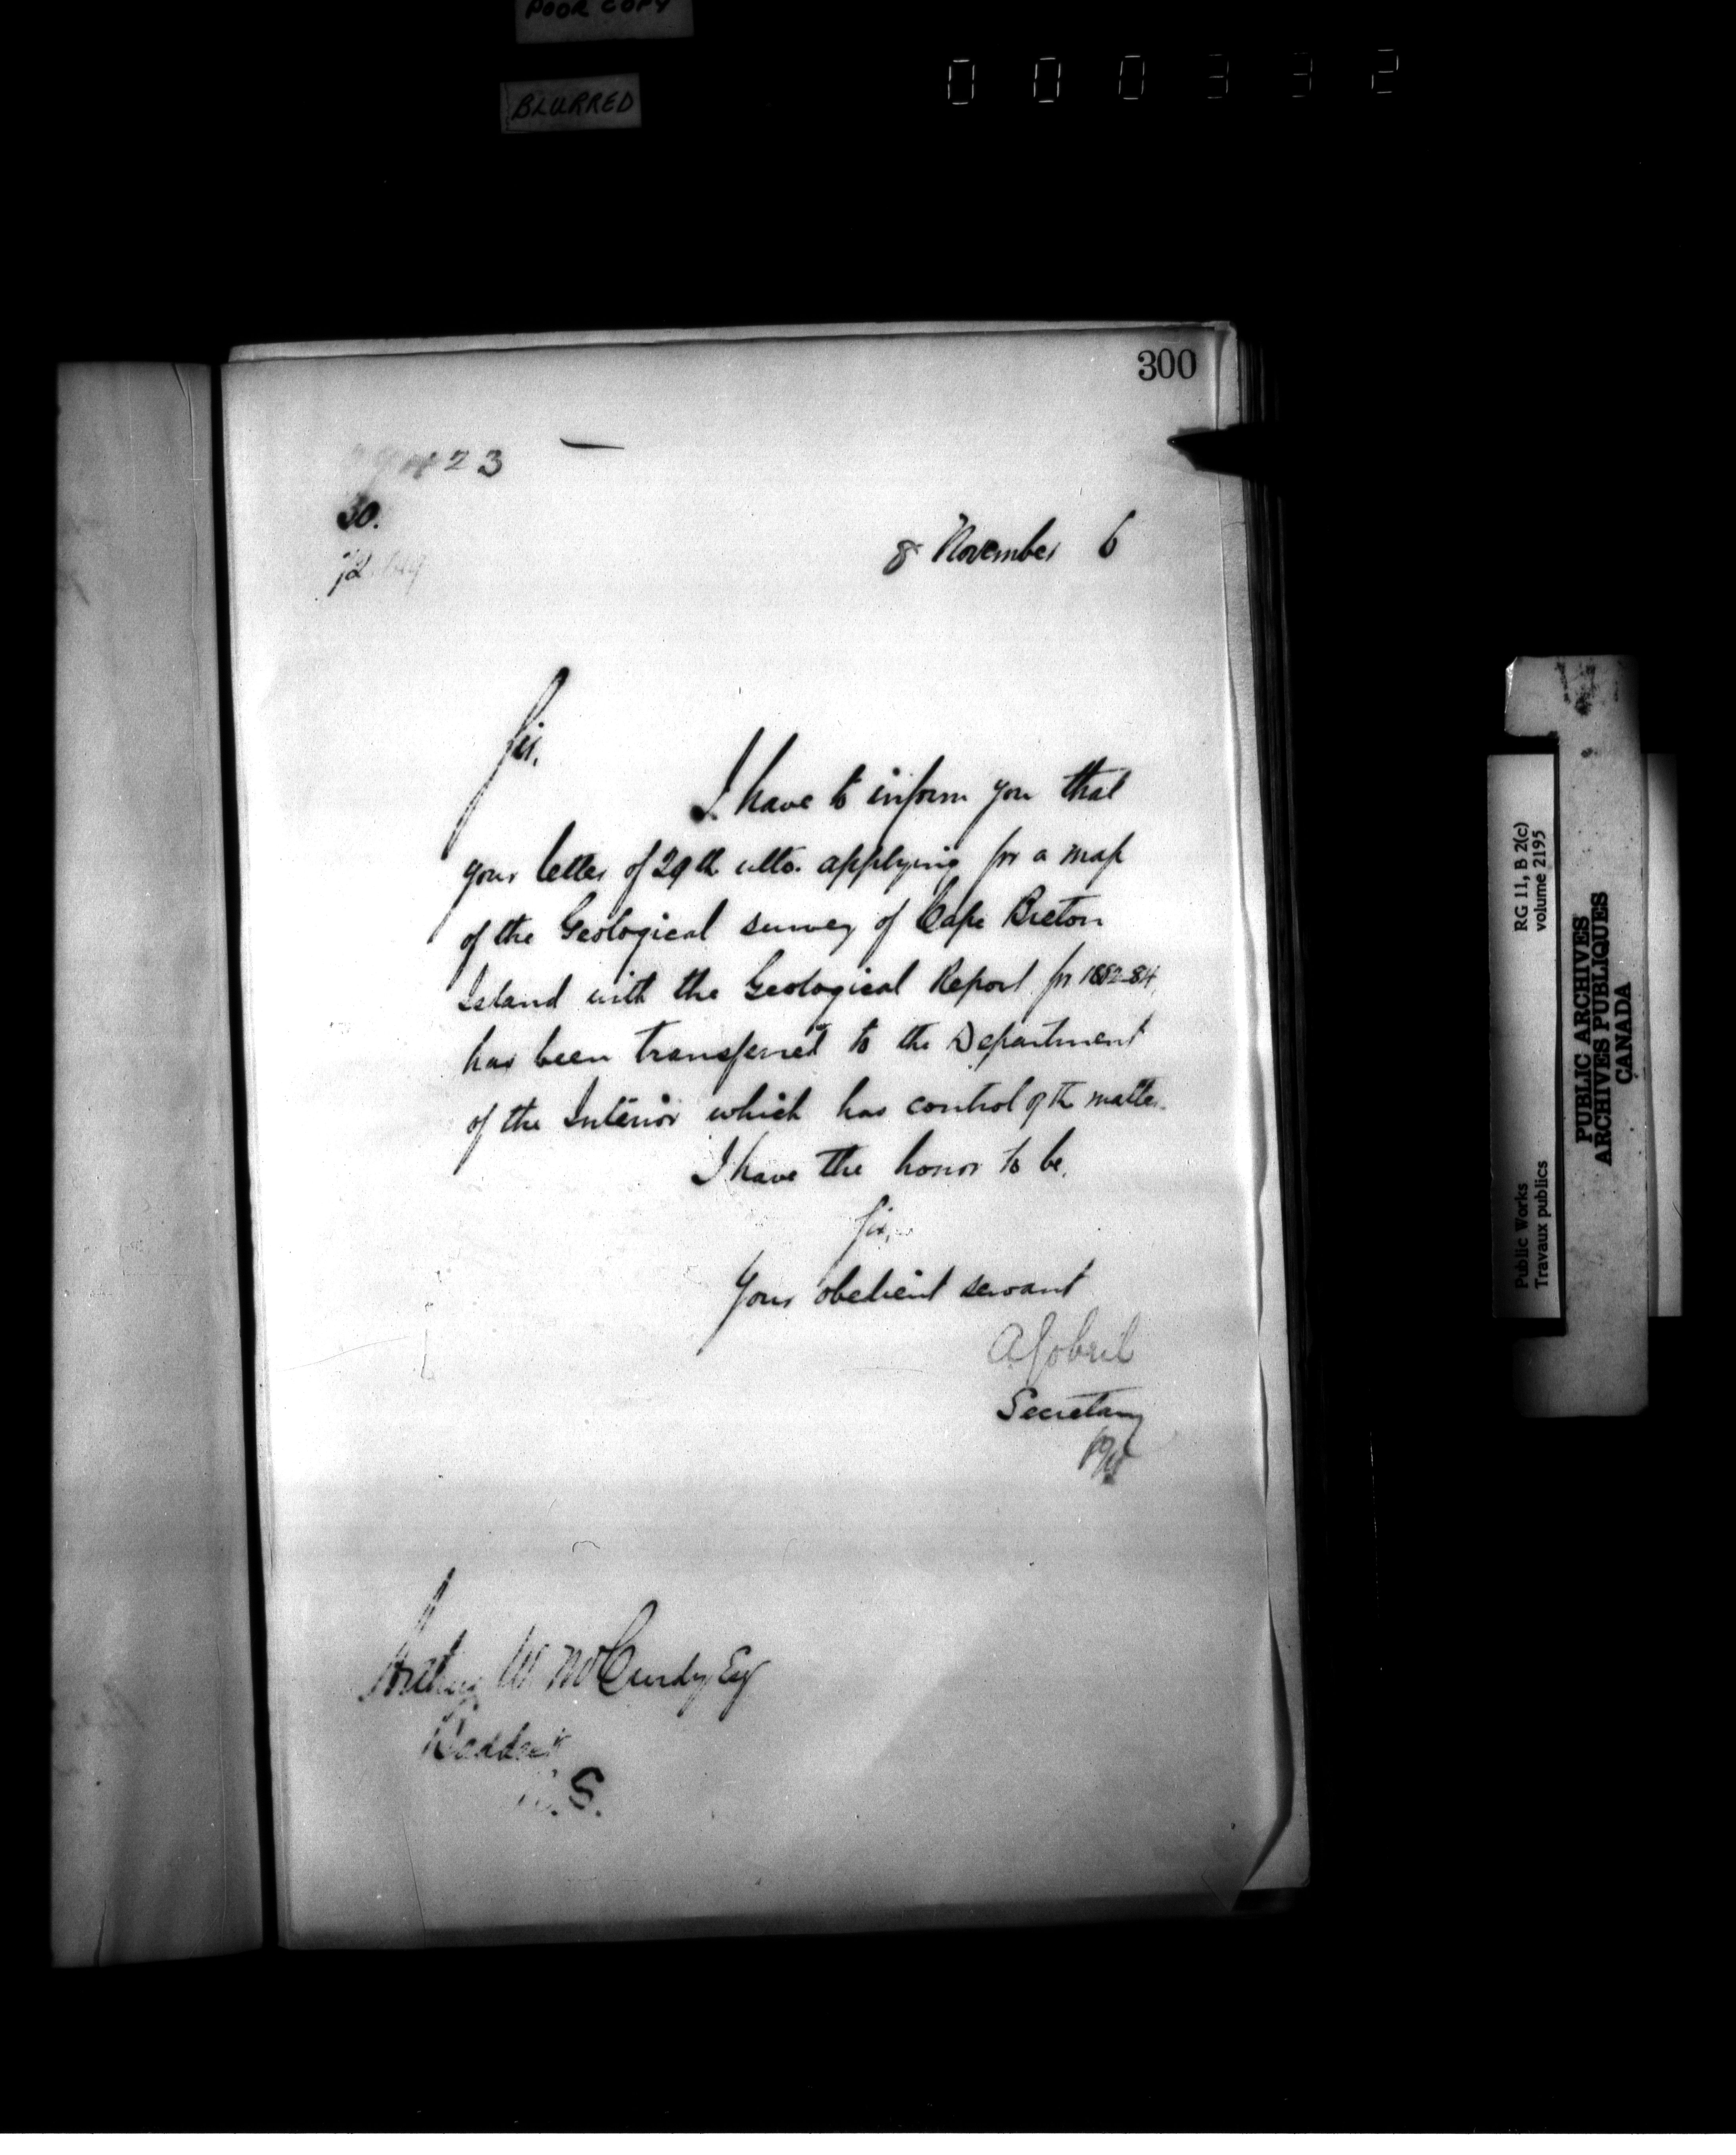 POOR COPY
BLURRED
000332
300
23
30.
72
8 November 6
Sir,
I have to inform you that
your letter of 29th ulto. applying for a map
of the Geological survey of Cape Breton
Island with the Geological Report for 1882-84,
has been transferred to the Department
of the Interior which has control of th matter.
I have the honor to be,
Sir,
Your obedient servant
A Gobeil
Secretary
Arthur W McCurdy Esq
Baddeck
N.S.
RG 11, B 2(c)
volume 2195
Public Works
Travaux publics
PUBLIC ARCHIVES
ARCHIVES PUBLIQUES
CANADA